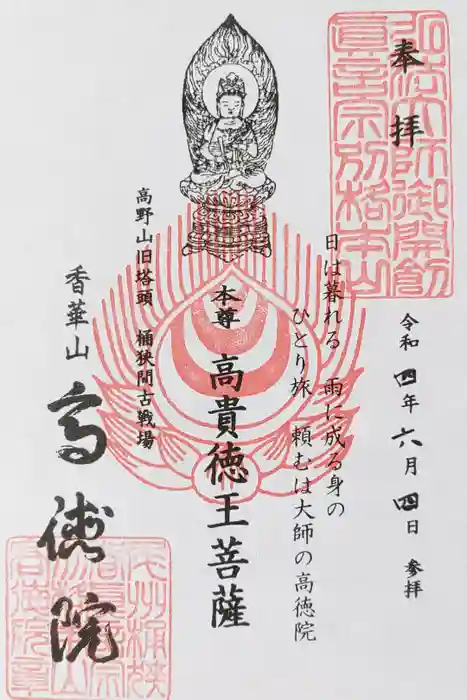 奉拝
弘法大師御開創
真言宗別格本山
令和四年六月四日 参拝
日は暮れる 雨に成る身の
ひとり旅 頼むは大師の高徳院
本尊 高貴徳王菩薩
高野山旧塔頭 桶狭間古戦場
香華山
高徳院